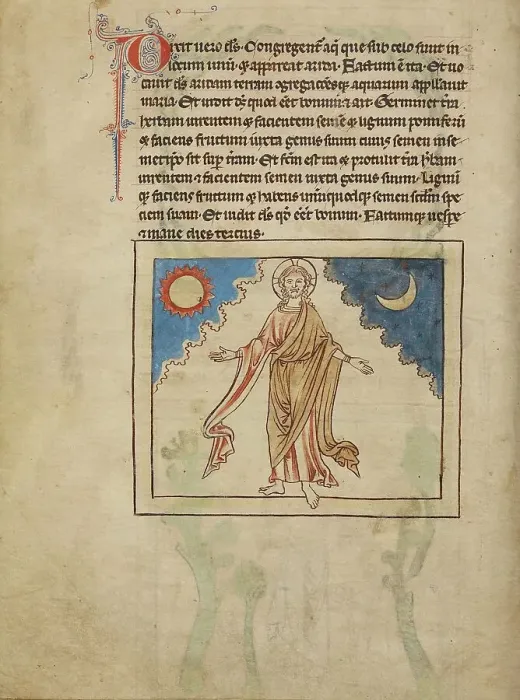 Dixit uero ds̄. Congregent᷑ aq̄ que sub celo sunt in
locum unū. ⁊ appareat arida. Factum ē ita. Et uo
cauit ds̄ aridam terram ↄgregacōesq; aquarum appllauit
maria. Et uidit ds̄ quod eēt bonum ⁊ ait. Germinet t̄ra
herbam uirentem ⁊ facientem semē ⁊ lignum pomiferū
⁊ faciens fructum iuxta genus suum cuius semen in se
metip̄o sit suꝑ t̄ram. Et fc̄m est ita ⁊ protulit t̄ra h̄bam
uirentem ⁊ facientem semen iuxta genus suum. Lignū
q̄ faciens fructum ⁊ habens unūquodq; semen scd̄m spe
ciem suam. Et uidit ds̄ qd̄ eēt bonum. Factumq; uespe
⁊ mane dies tercius.